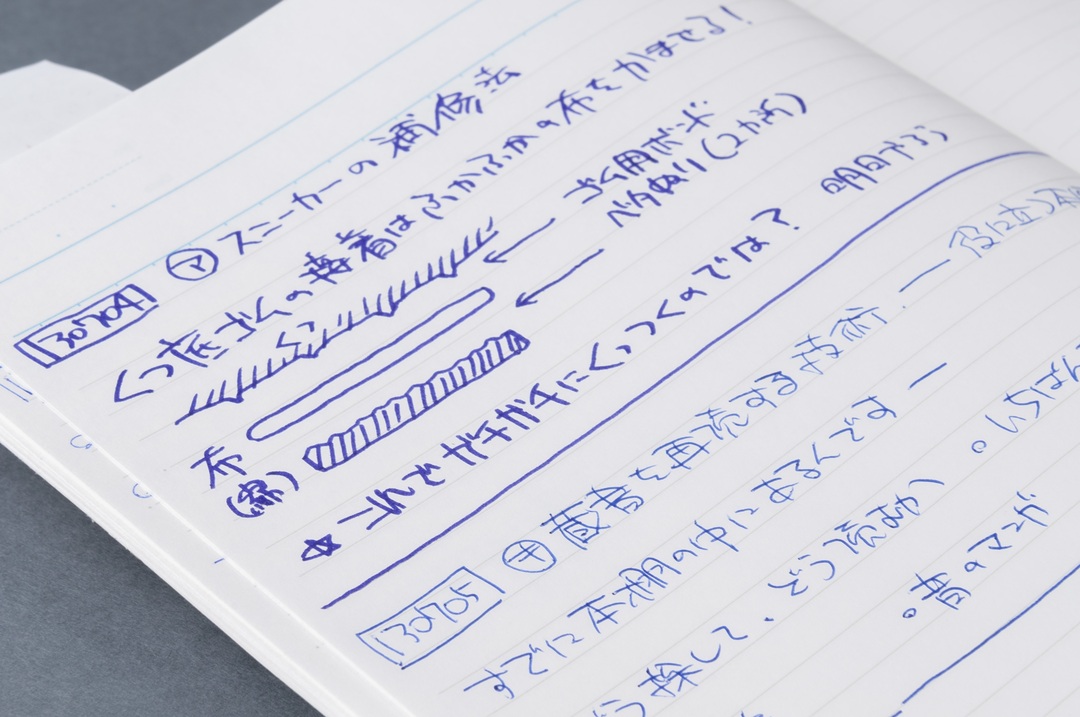 130704 ㋮ スニーカーの補修法
くつ底ゴムの接着はふかふかの布をかませる!
ゴム用ボンド
ベタぬり(2か所)
布
(綿)
☆これでガチガチにくっつくのでは? 明日やろう
130705 ㊉ 蔵書を再読する技術. — 役に立つ本
すでに本棚の中にあるんです —
どう探して、どう読むか)
。いちばん
。昔のマンガ